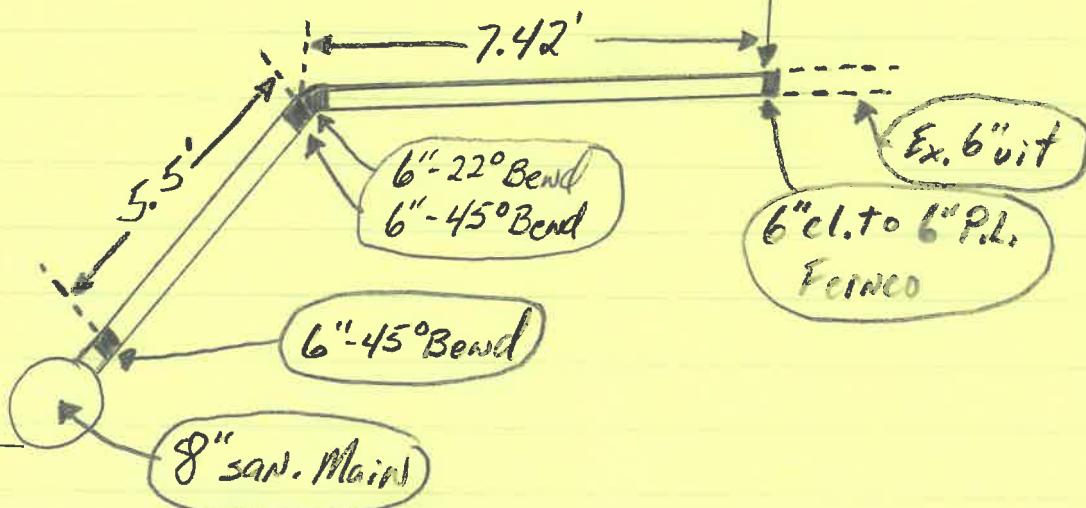 7.42'
5.5'
6"-22° Bend
6"-45° Bend
Ex. 6" vit
6" cl. to 6" P.L.
Fernco
6"-45° Bend
8" san. Main